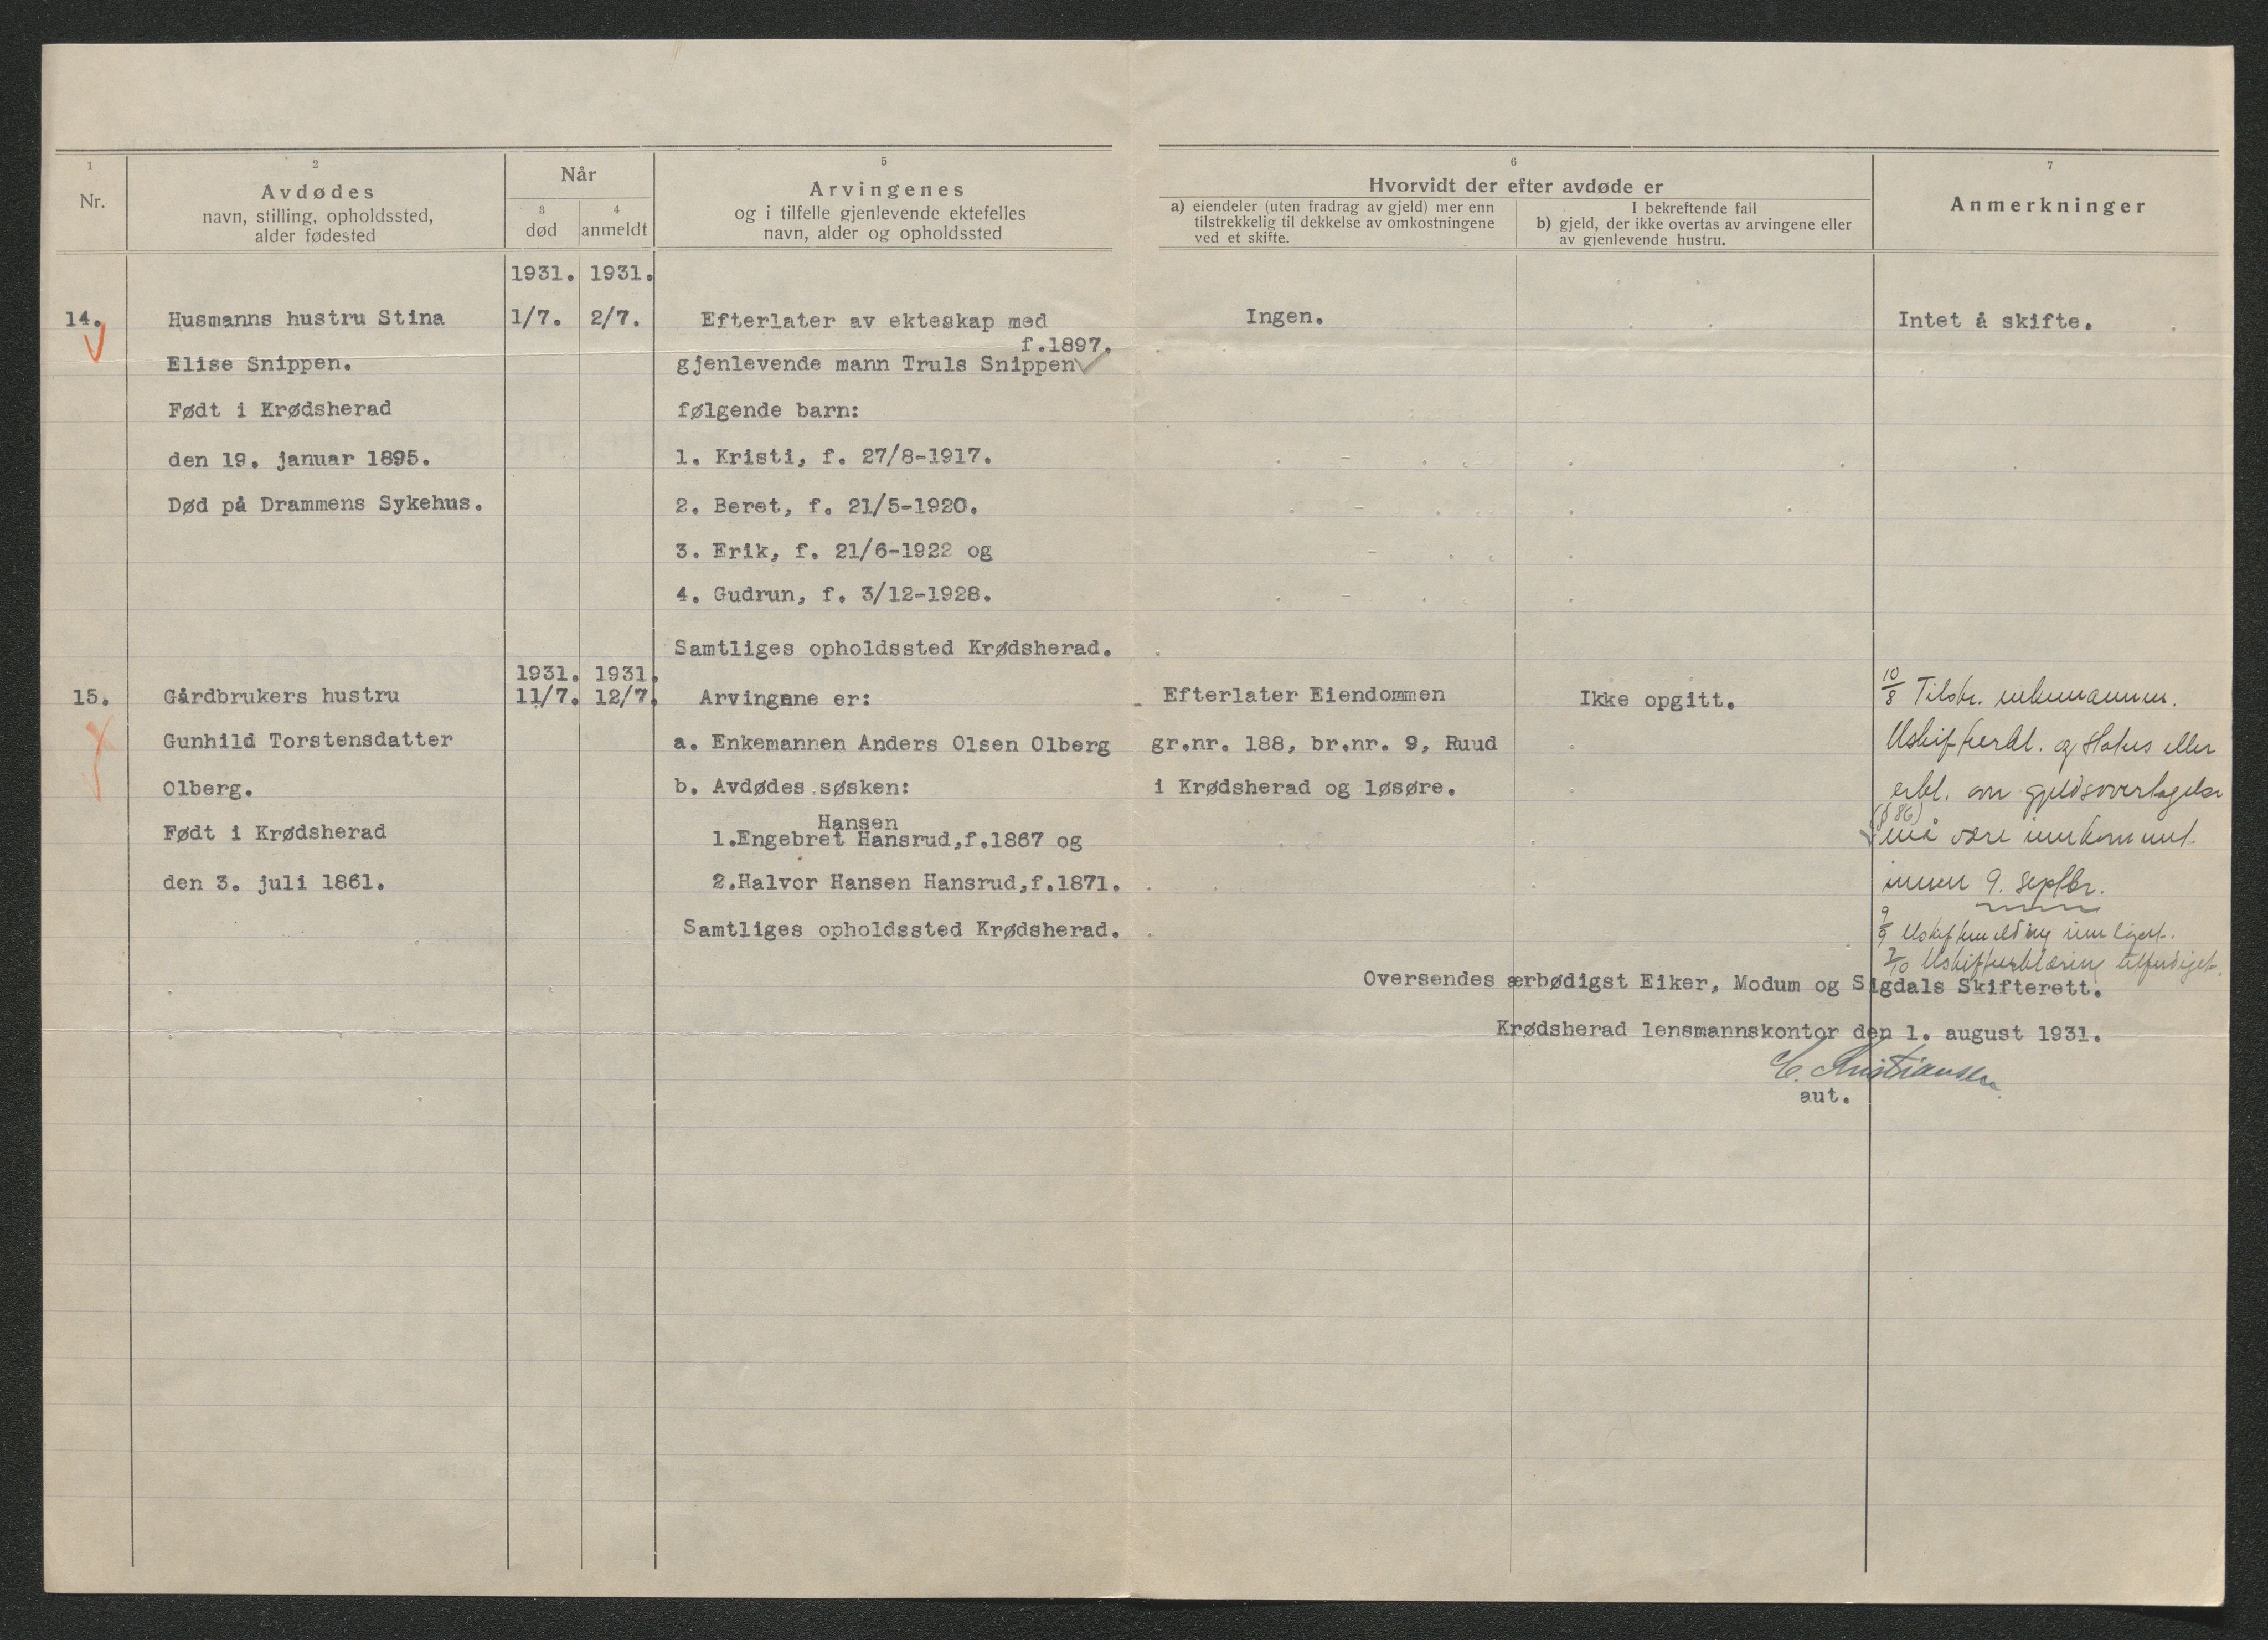 1
Nr.
2
Avdødes
navn, stilling, opholdssted,
alder fødested
Når
3
død
4
anmeldt
5
Arvingenes
og i tilfelle gjenlevende ektefelles
navn, alder og opholdssted
6
Hvorvidt der efter avdøde er
a) eiendeler (uten fradrag av gjeld) mer enn
tilstrekkelig til dekkelse av omkostningene
ved et skifte.
I bekreftende fall
b) gjeld, der ikke overtas av arvingene eller
av gjenlevende hustru.
7
Anmerkninger
14.
Husmanns hustru Stina
Elise Snippen.
Født i Krødsherad
den 19. januar 1895.
Død på Drammens Sykehus.
1931. 1931.
1/7. 2/7.
Efterlater av ekteskap med
f.1897.
gjenlevende mann Truls Snippen
følgende barn:
1. Kristi, f. 27/8-1917.
2. Beret, f. 21/5-1920.
3. Erik, f. 21/6-1922 og
4. Gudrun, f. 3/12-1928.
Samtliges opholdssted Krødsherad.
Ingen.
Intet å skifte.
15.
Gårdbrukers hustru
Gunhild Torstensdatter
Olberg.
Født i Krødsherad
den 3. juli 1861.
1931. 1931.
11/7. 12/7.
Arvingene er:
a. Enkemannen Anders Olsen Olberg
b. Avdødes søsken:
Hansen
1.Engebret Hansrud,f.1867 og
2.Halvor Hansen Hansrud,f.1871.
Samtliges opholdssted Krødsherad.
Efterlater Eiendommen
gr.nr. 188, br.nr. 9, Ruud
i Krødsherad og løsøre.
Ikke opgitt.
10/8 Tilskr. enkemannen.
Uskifteerkl. og status eller
erkl. om gjeldsovertagelse
(§ 86)
må være innkommet
innen 9. septbr.
9/9 Uskiftemelding innlevert.
2/10 Uskifteerklæring utferdiget.
Oversendes ærbødigst Eiker, Modum og Sigdals Skifterett.
Krødsherad lensmannskontor den 1. august 1931.
C. Kristiansen
aut.